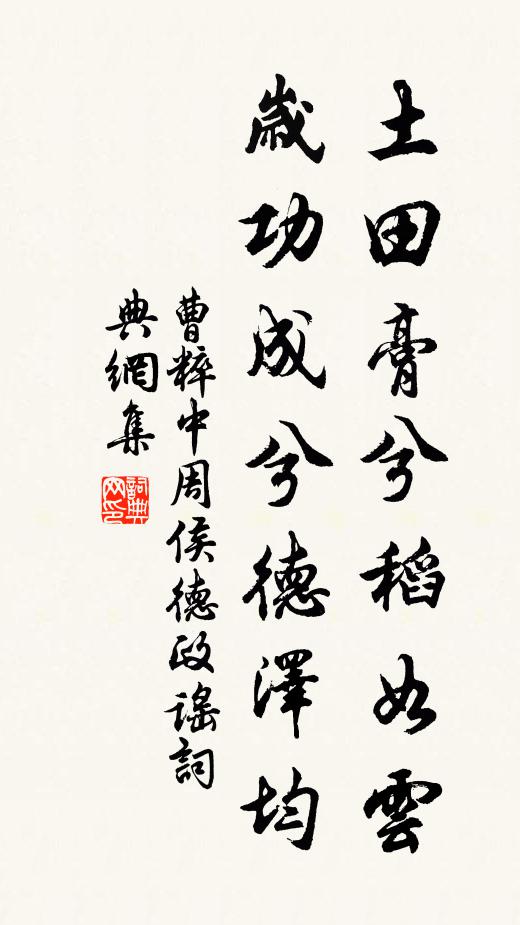 土田膏兮稻如雲
歲功成兮德澤均
曹粹中周侯德政謠詞
典網集
詞典網印